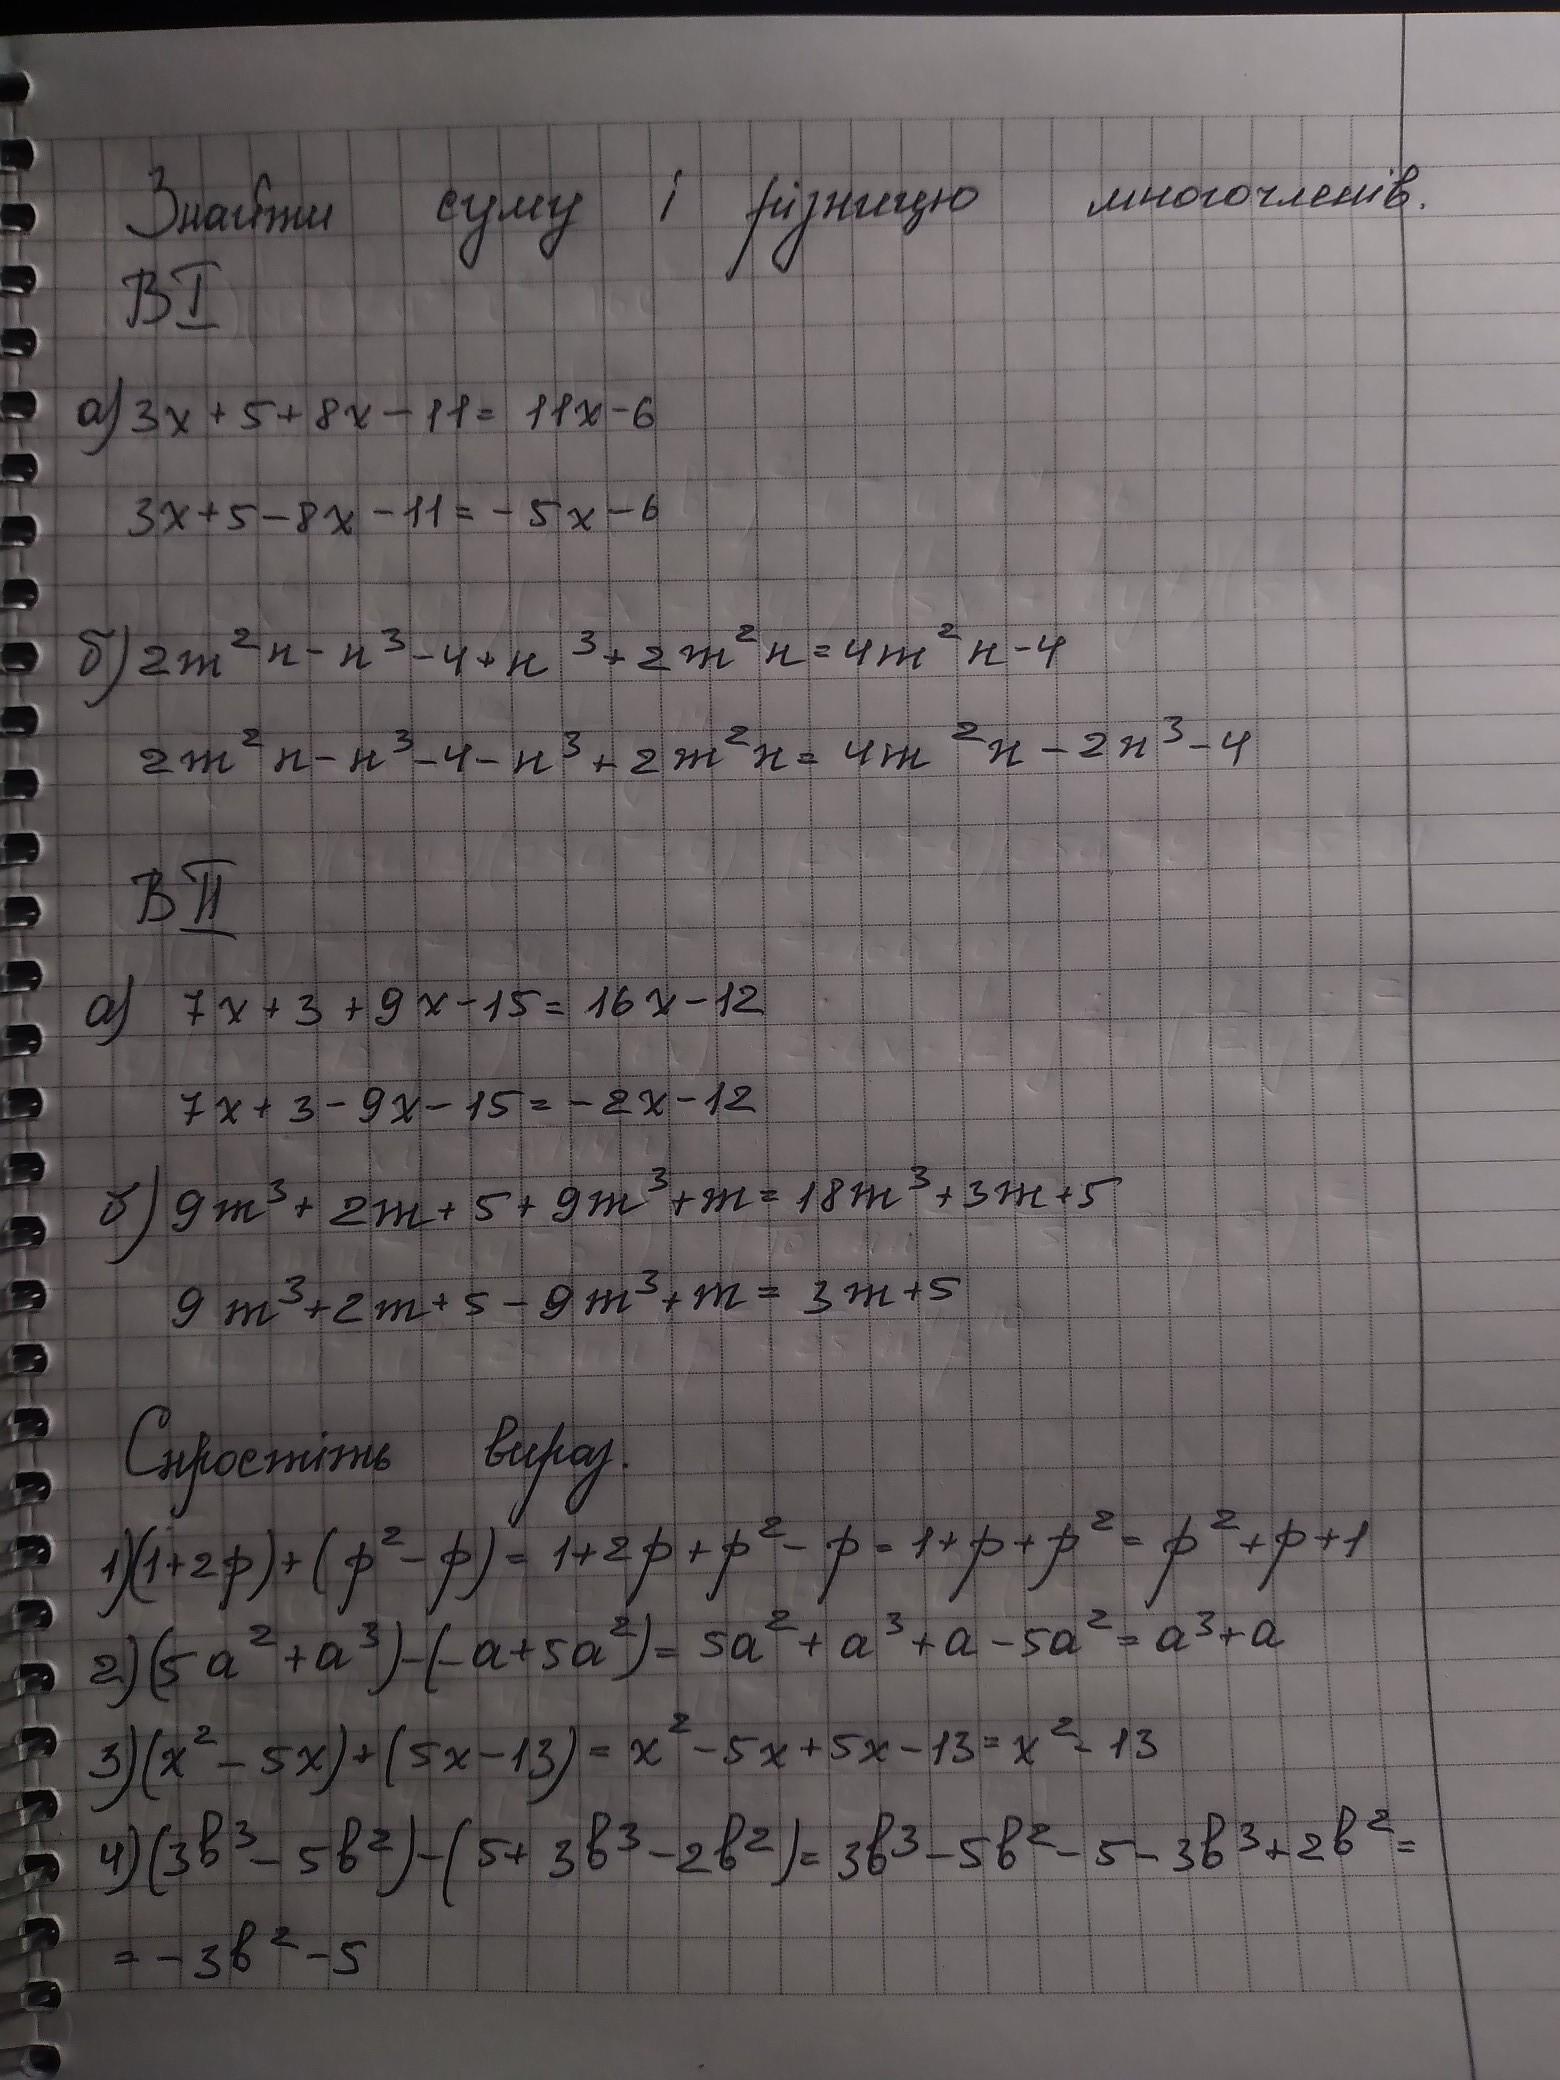 Знайти суму і різницю многочленів.
В I
а) 3x + 5 + 8x - 11 = 11x - 6
3x + 5 - 8x - 11 = - 5x - 6
б) 2m²n - n³ - 4 + n³ + 2m²n = 4m²n - 4
2m²n - n³ - 4 - n³ + 2m²n = 4m²n - 2n³ - 4
В II
а) 7x + 3 + 9x - 15 = 16x - 12
7x + 3 - 9x - 15 = - 2x - 12
б) 9m³ + 2m + 5 + 9m³ + m = 18m³ + 3m + 5
9m³ + 2m + 5 - 9m³ + m = 3m + 5
Спростіть вираз.
1) (1 + 2p) + (p² - p) = 1 + 2p + p² - p = 1 + p + p² = p² + p + 1
2) (5a² + a³) - (-a + 5a²) = 5a² + a³ + a - 5a² = a³ + a
3) (x² - 5x) + (5x - 13) = x² - 5x + 5x - 13 = x² - 13
4) (3b³ - 5b²) - (5 + 3b³ - 2b²) = 3b³ - 5b² - 5 - 3b³ + 2b² =
= - 3b² - 5